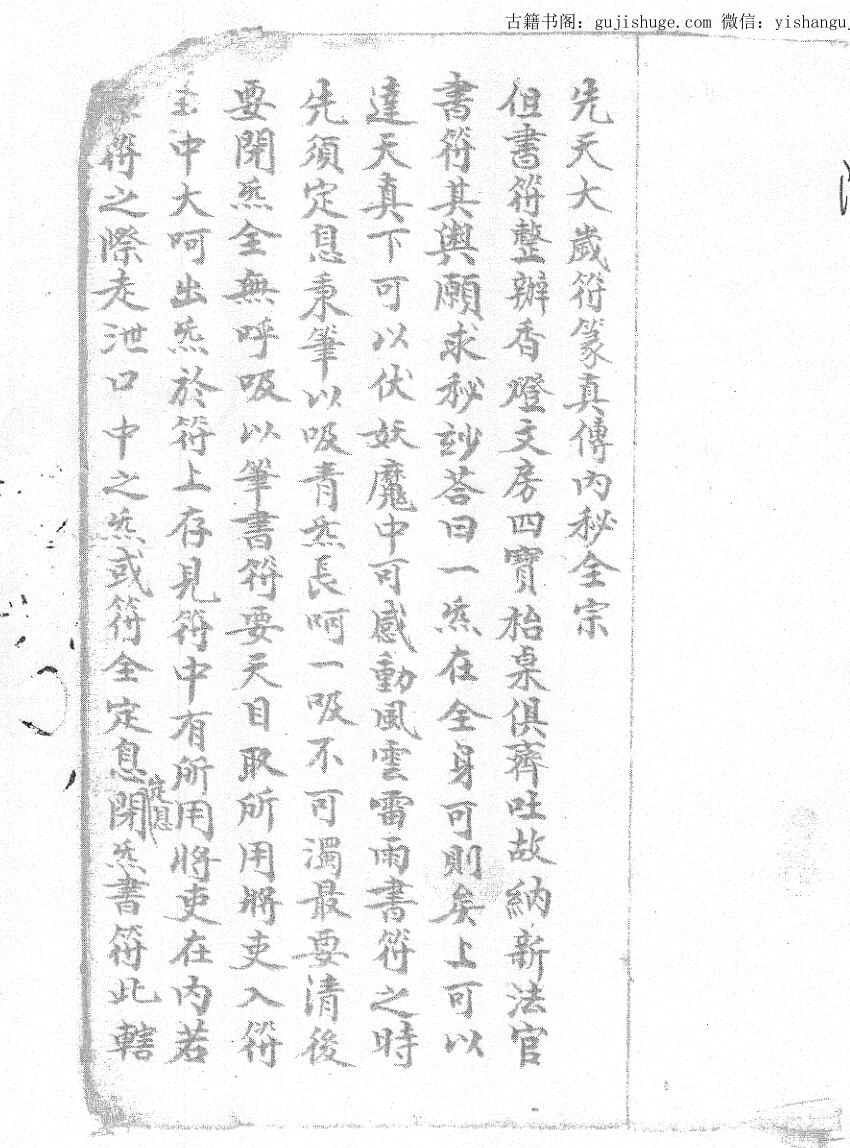 古籍书阁：gujishuge.com 微信：yishangu
先天大歲符篆真傳內秘全宗
但書符整辦香燈文房四寶抬桌俱齊吐故納新法官
書符其輿願求秘訣荅曰一炁在全身可則矣上可以
達天真下可以伏妖魔中可感動風雲雷雨書符之時
先須定息秉筆以吸青炁長呵一吸不可濁最要清後
要閉炁全無呼吸以筆書符要天目取所用將吏入符
中大呵出炁於符上存見符中有所用將吏在內若
符之際走泄口中之炁或符全定息閉炁書符此轄
定息